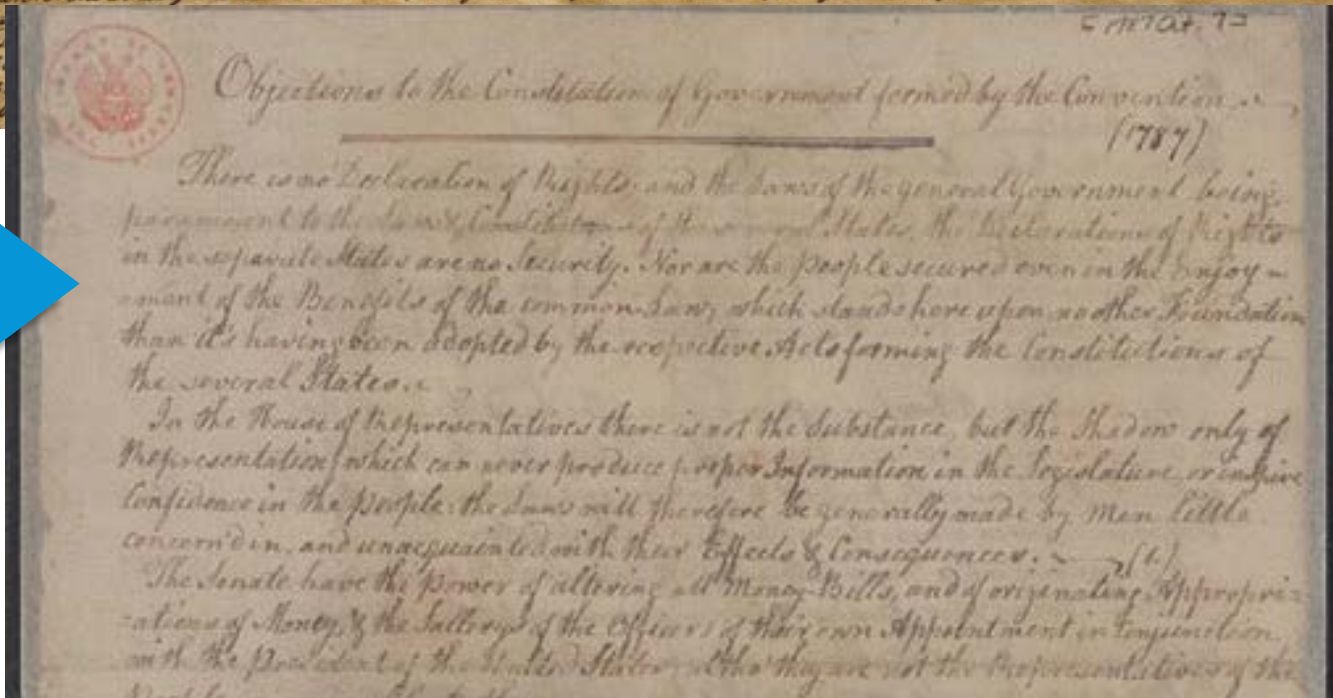 Objections to the Constitution of Government formed by the Convention.
(1787)
There is no Declaration of Rights; and the Laws of the general Government being
paramount to the Laws & Constitutions of the several States, the Declarations of Rights
in the separate States are no Security. Nor are the people secured even in the Enjoy-
-ment of the Benefits of the common-Law, which stands here upon no other Foundation
than it's having been adopted by the respective Acts forming the Constitutions of
the several States.
In the House of Representatives there is not the Substance, but the Shadow only of
Representation; which can never produce proper Information in the Legislature, or inspire
Confidence in the People: the Laws will therefore be generally made by Men little
concern'd in, and unacquainted with their Effects & Consequences. (1)
The Senate have the Power of altering all Money-Bills, and of originating Appropri-
-ations of Money, & the Sallerys of the Officers of their own Appointment in Conjunction
with the President of the United States; altho' they are not the Representatives of the